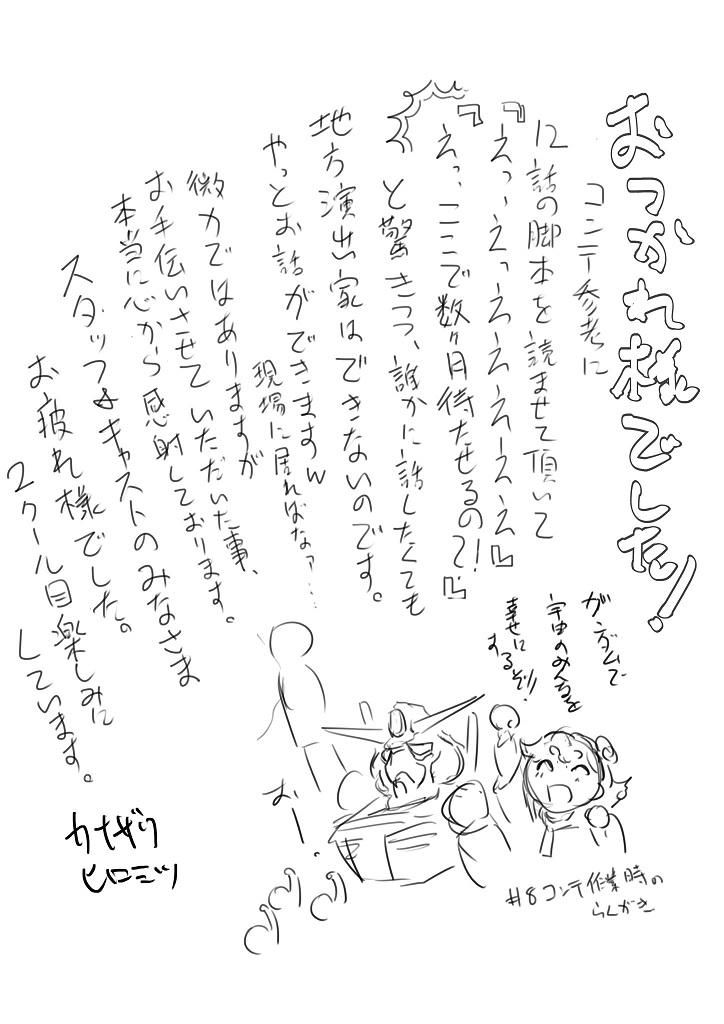 おつかれ様でした!
コンテ参考に
12話の脚本を読ませて頂いて
『えっ、えっえええーええ』
『えっ、ここで数ヶ月待たせるので!』
と驚きつつ、誰かに話したくても
地方演出家はできないのです。
やっとお話ができますw
現場に居ればなァ…
微力ではありますが
お手伝いさせていただいた事、
本当に心から感射しております。
スタッフ&キャストのみなさま
お疲れ様でした。
2クール目楽しみに
しています。
カナザワ
ヒロミツ
ガンダムで
宇宙のみんなを
幸せに
するぞ!!
おー
#8コンテ作業時の
らくがき